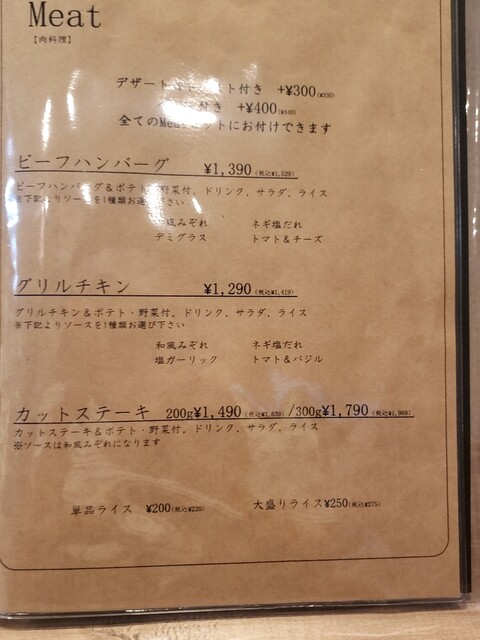 Meat
【肉料理】
デザート 付き +¥300(¥330)
付き +¥400(¥440)
全てのMeat セットにお付けできます
ビーフハンバーグ ¥1,390(税込¥1,529)
ビーフハンバーグ&ポテト・野菜付、ドリンク、サラダ、ライス
※下記よりソースを1種類お選び下さい
和風みぞれ ネギ塩だれ
デミグラス トマト&チーズ
グリルチキン ¥1,290(税込¥1,419)
グリルチキン&ポテト・野菜付、ドリンク、サラダ、ライス
※下記よりソースを1種類お選び下さい
和風みぞれ ネギ塩だれ
塩ガーリック トマト&バジル
カットステーキ 200g¥1,490(税込¥1,639)/300g¥1,790(税込¥1,969)
カットステーキ&ポテト・野菜付、ドリンク、サラダ、ライス
※ソースは和風みぞれになります
単品ライス ¥200(税込¥220) 大盛りライス¥250(税込¥275)